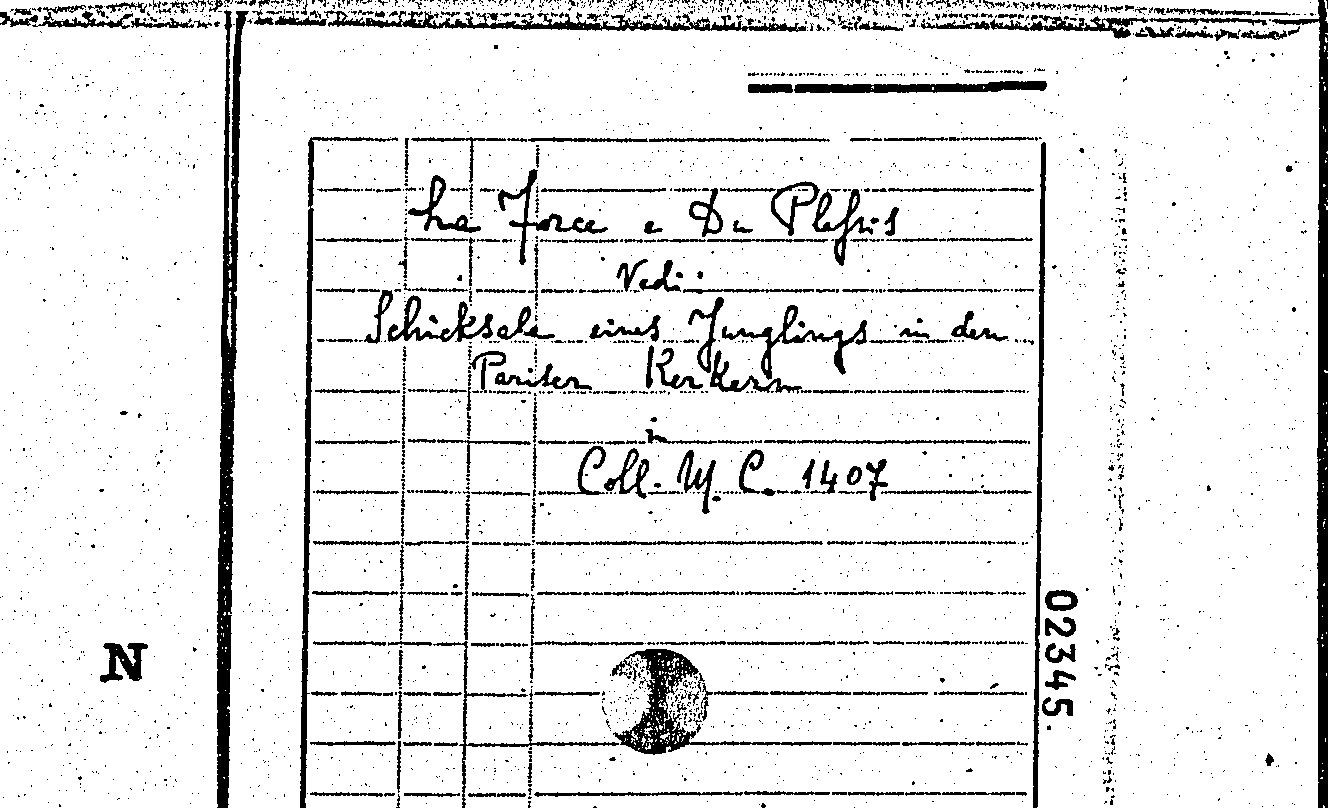 La Force e Du Plessis
Vedi:
Schicksale eines Junglings in den
Pariser Kerkern
in
Coll. M. C. 1407
02345.
N